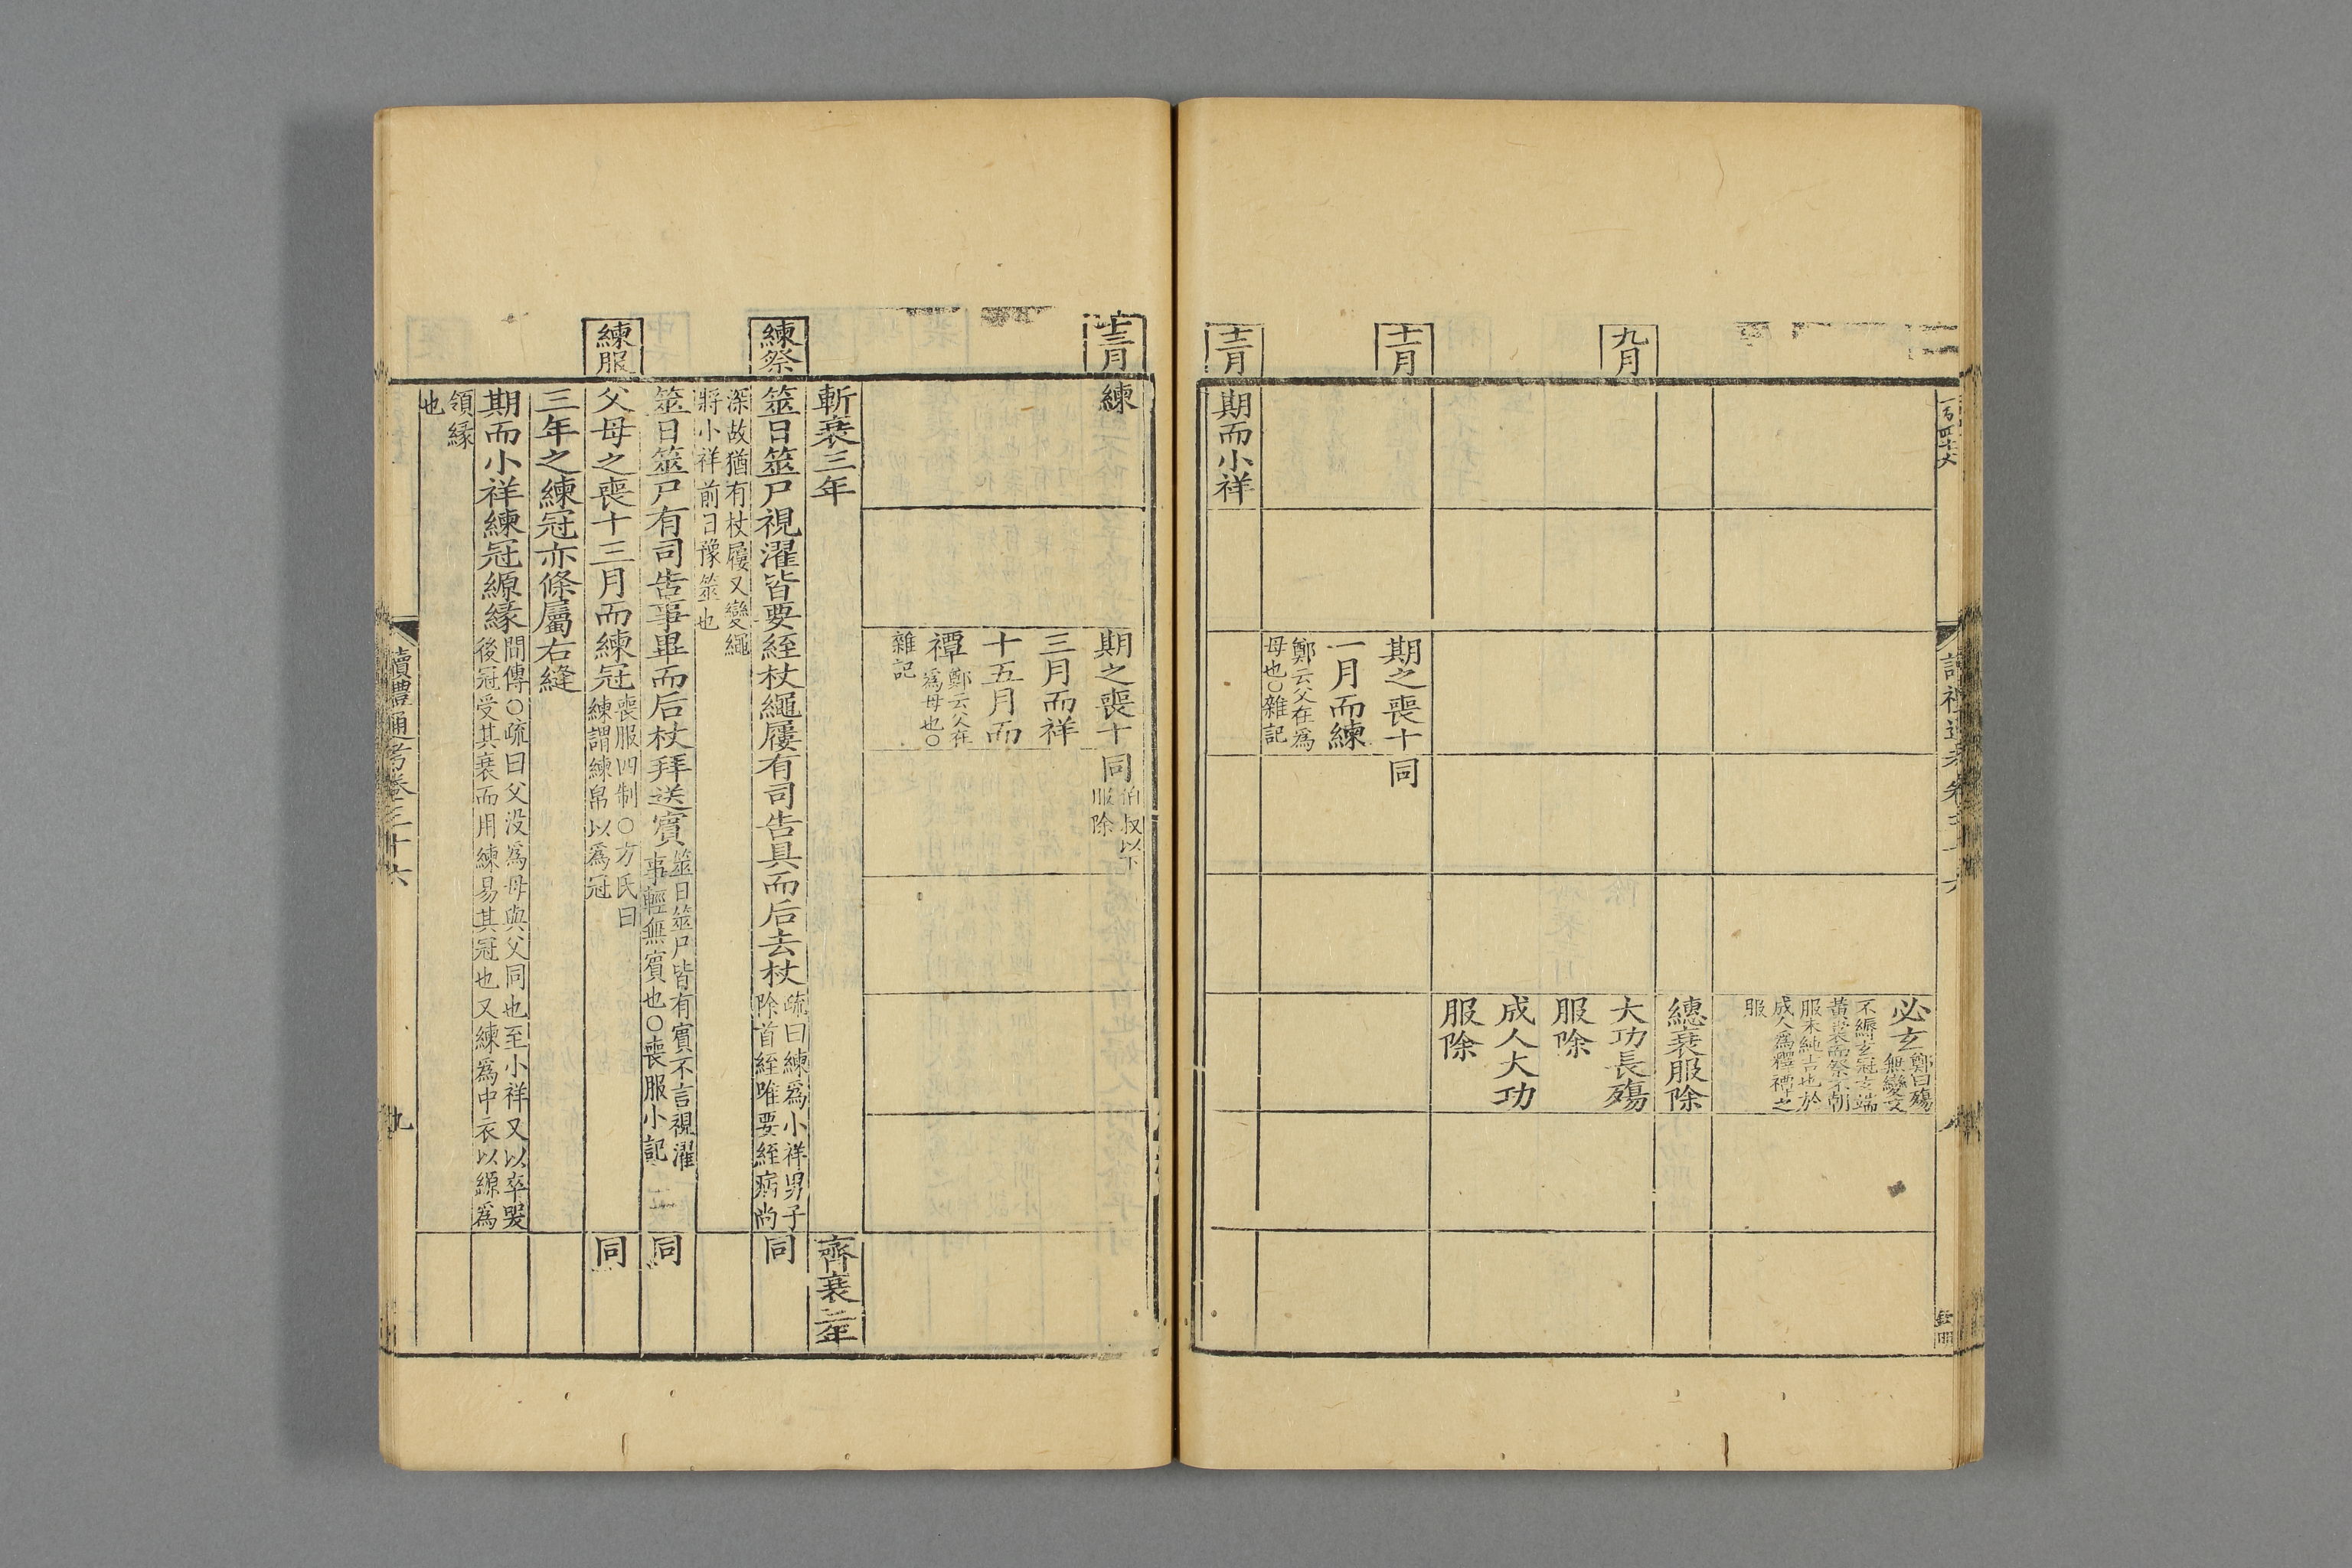 必玄鄭曰殤
無變文
不縟玄冠玄端
黃裳而祭不朝
服未純吉也於
成人為釋禫之
服
緦衰服除
九月
大功長殤
服除
成人大功
服除
十一月
期之喪十
一月而練
鄭云父在爲
母也○雜記
同
十二月
期而小祥
讀禮通考卷三十六
十三月
練
期之喪十
三月而祥
十五月而
禫鄭云父在
爲母也○
雜記
同伯叔以下
服除
斬衰三年
齊衰三年
練祭
筮日筮尸視濯皆要絰杖繩屨有司告具而后去杖疏曰練爲小祥男子
除首絰唯要絰病尚
深故猶有杖屨又變繩
將小祥前日豫筮也
同
筮日筮尸有司告事畢而后杖拜送賓筮日筮尸皆有賓不言視濯
事輕無賓也○喪服小記
同
練服
父母之喪十三月而練冠喪服四制○方氏曰
練謂練帛以爲冠
同
三年之練冠亦條屬右縫
期而小祥練冠縓緣間傳○疏曰父没爲母與父同也至小祥又以卒哭
後冠受其衰而用練易其冠也又練爲中衣以縓爲
領緣
也
讀禮通考卷三十六
九